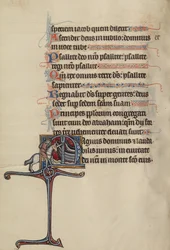 speciem iacob quem dilexit
Ascendit deus in iubilo: dominus
in uoce tube
Psallite deo nostro psallite: psallite
regi nostro psallite
Quoniam rex omnis terre deus: psallite
sapienter
Regnabit deus super gentes: deus
sedet super sedem suam
Principes populorum congregati
sunt cum deo abraham: quoniam dii for
tes terre uehementer eleuati sunt
agnus dominus et lauda
bilis nimis: in ciuitate
dei nostri in monte sancto eius